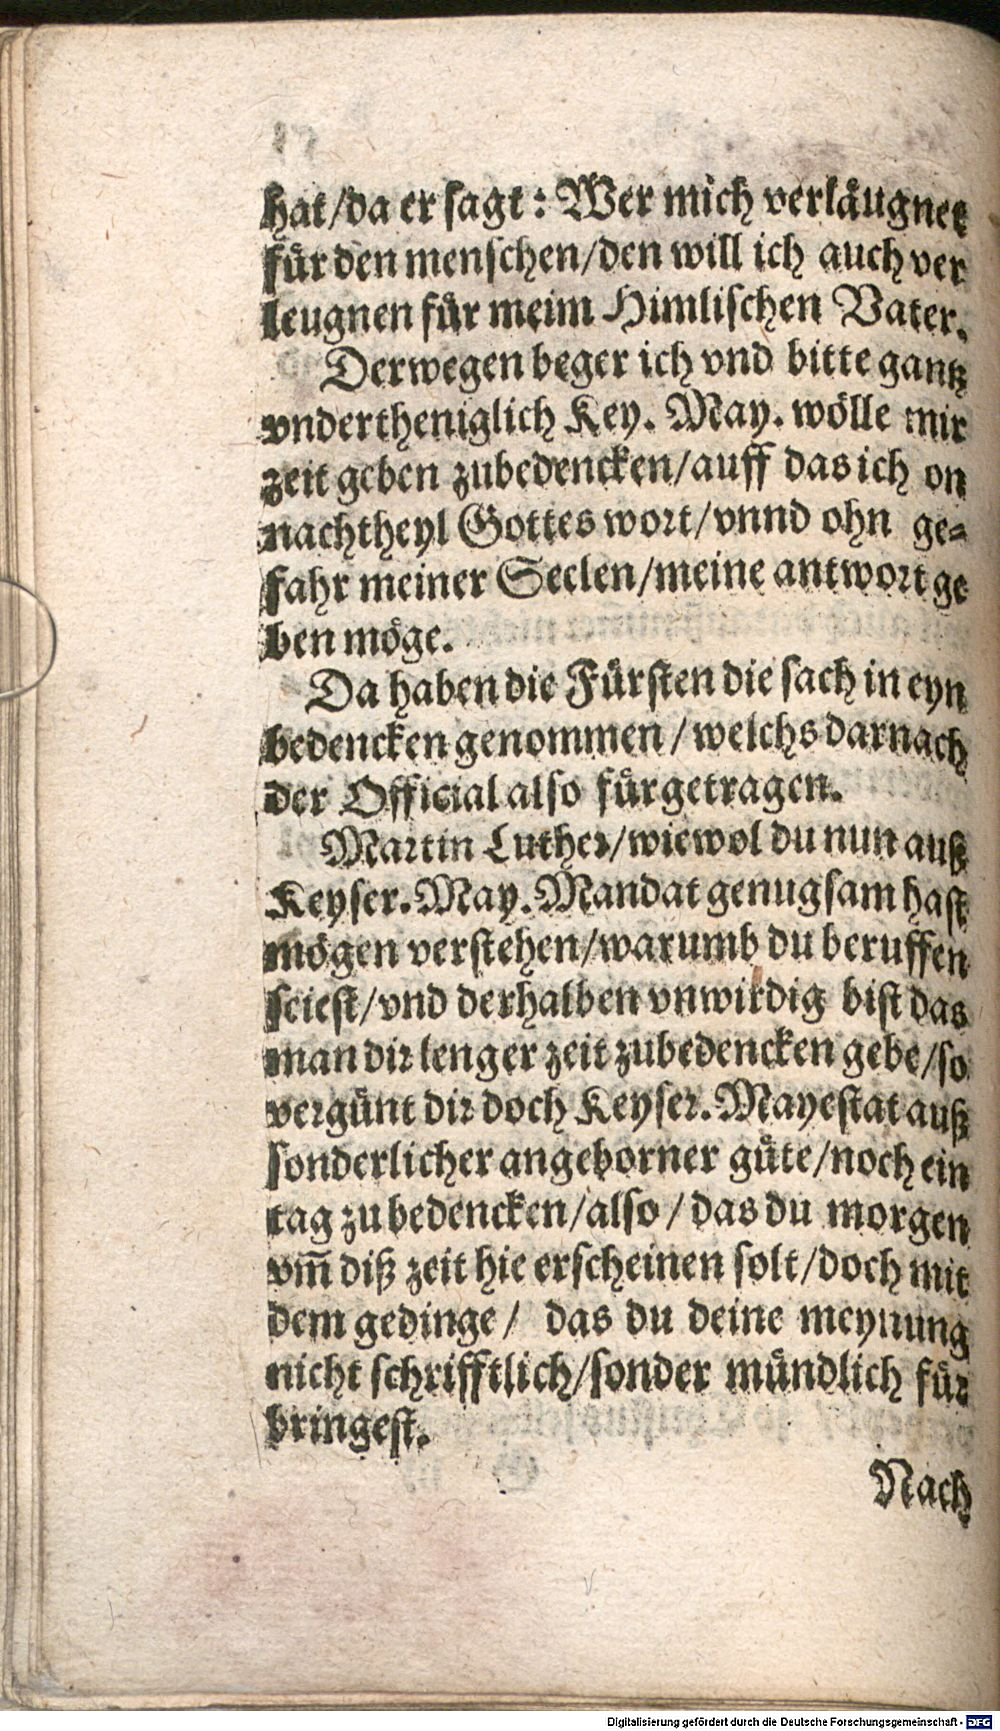 hat/da er sagt: Wer mich verläugnet
für den menschen/den will ich auch ver
leugnen für meim Himlischen Vater.
Derwegen beger ich vnd bitte gantz
vndertheniglich Key. May. wölle mir
zeit geben zubedencken/auff das ich on
nachtheyl Gottes wort/vnnd ohn ge-
fahr meiner Seelen/meine antwort ge
ben möge.
Da haben die Fürsten die sach in eyn
bedencken genommen/welchs darnach
der Official also fürgetragen.
Martin Luther/wiewol du nun auß
Keyser. May. Mandat genugsam hast
mögen verstehen/warumb du beruffen
seiest/vnd derhalben vnwirdig bist das
man dir lenger zeit zubedencken gebe/so
vergünt dir doch Keyser. Mayestat auß
sonderlicher angeborner güte/noch ein
tag zu bedencken/also/das du morgen
vm̄ diß zeit hie erscheinen solt/doch mit
dem gedinge/ das du deine meynung
nicht schrifftlich/sonder mündlich für
bringest.
Nach
Digitalisierung gefördert durch die Deutsche Forschungsgemeinschaft - DFG